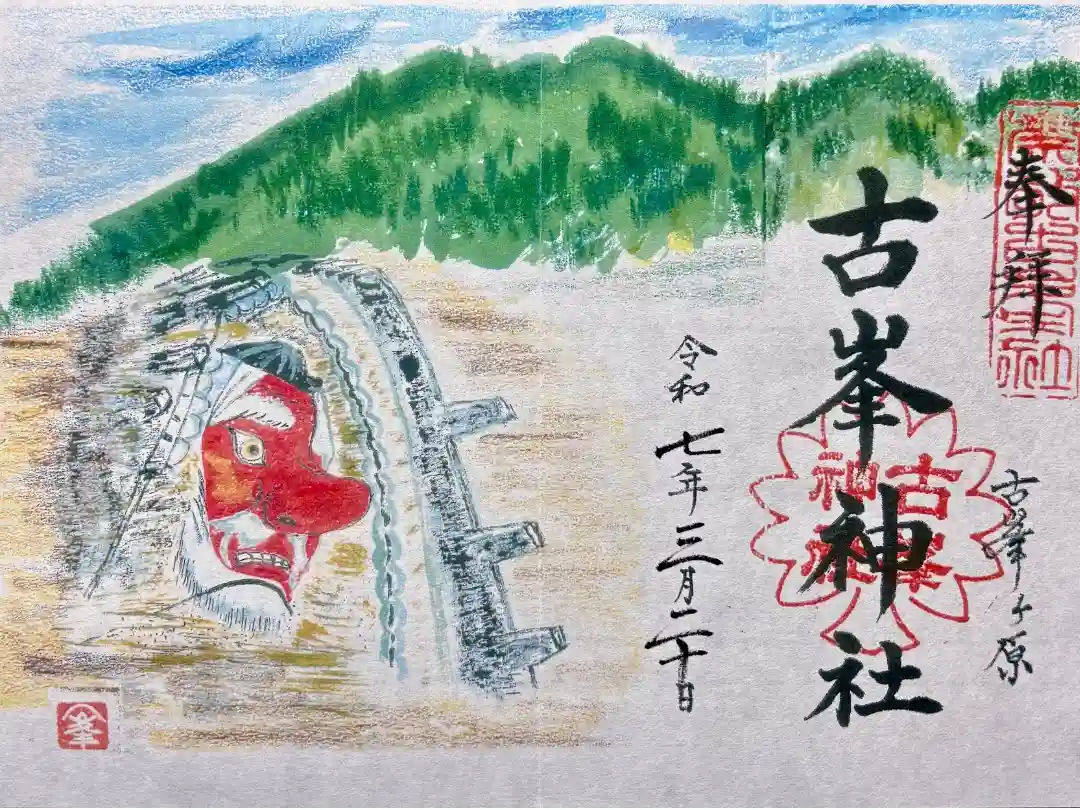 奉拝
古峯ヶ原
古峯神社
古峯
神社
令和七年三月二十日
峯